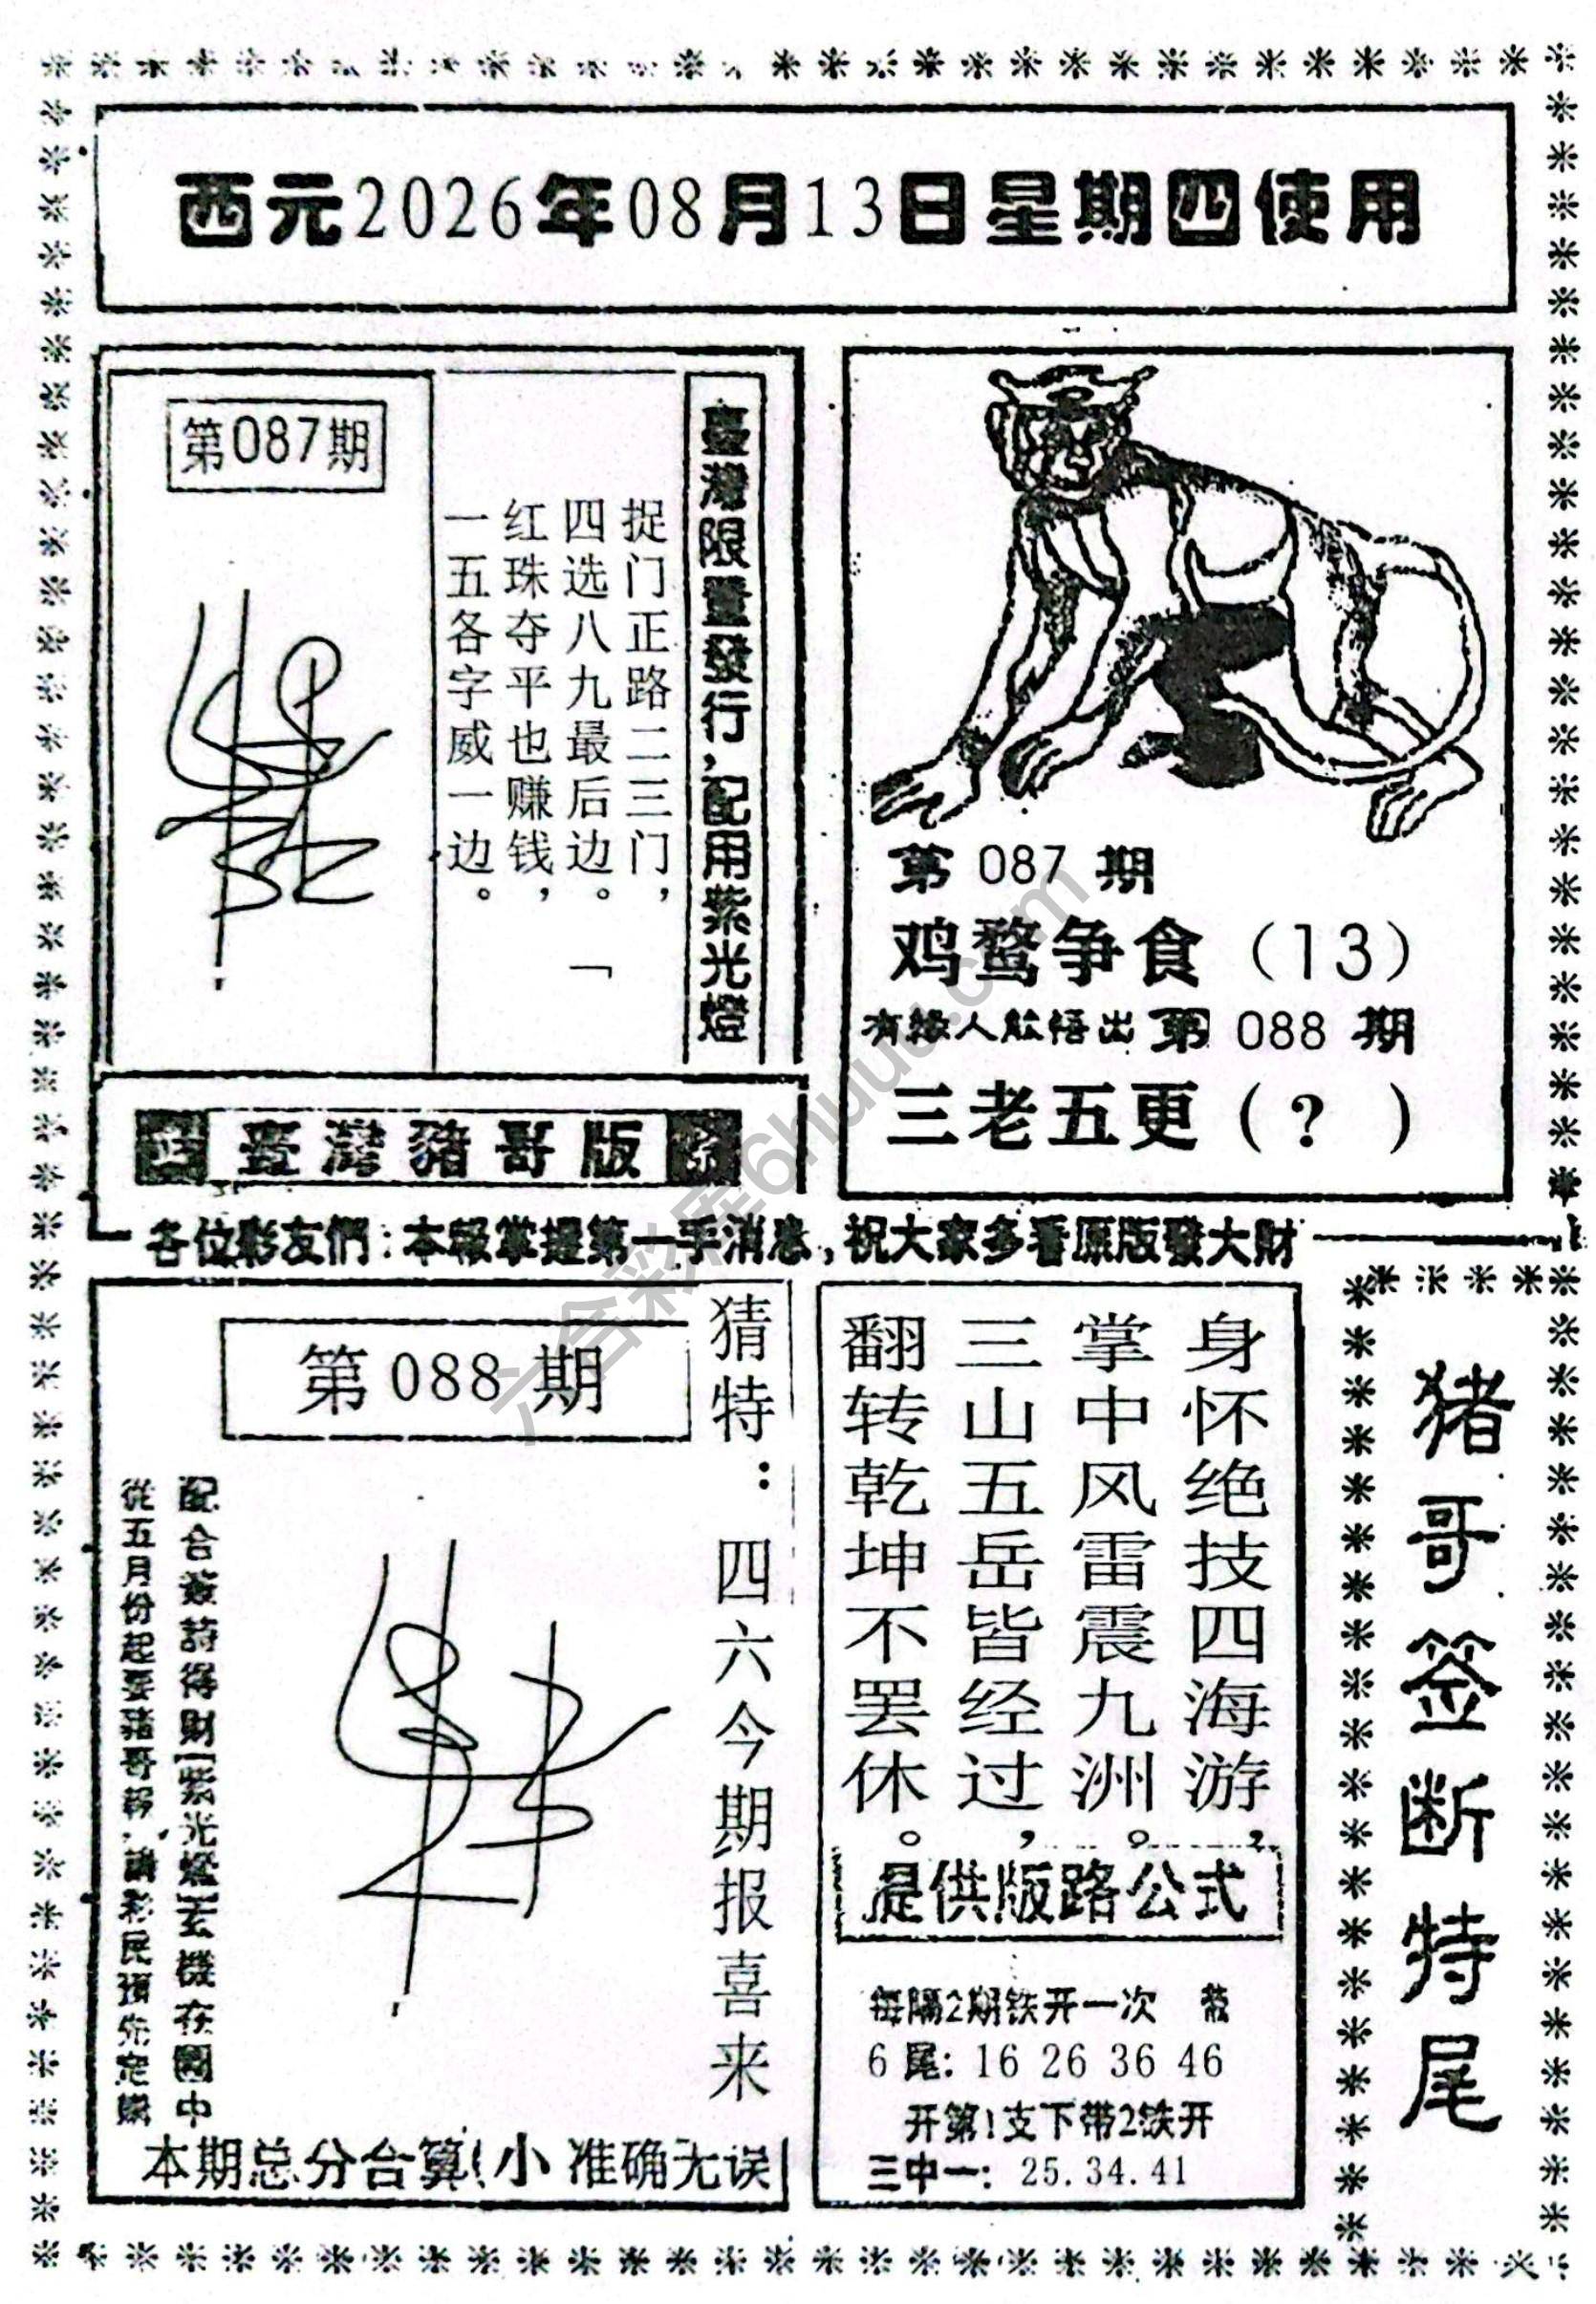 西元2026年08月13日星期四使用
第087期
臺灣限量發行,配用紫光燈
捉门正路二三门，
四选八九最后边。「
红珠夺平也赚钱，
一五各字威一边。
第 087 期
鸡鹜争食（13）
有缘人能悟出 第 088 期
三老五更（？）
臺灣豬哥版
各位彩友們:本報掌握第一手消息,祝大家多看原版發大財
第 088 期
猜特：四六今期报喜来
配合簽詩得財[紫光燈]玄機在圖中
從五月份起要豬哥報,請彩民預先定購
本期总分合算(小 准确无误
身怀绝技四海游，
掌中风雷震九洲。
三山五岳皆经过，
翻转乾坤不罢休。
提供版路公式
每隔2期铁开一次 带
6 尾: 16 26 36 46
开第1支下带2铁开
三中一: 25.34.41
猪哥签断特尾
六合彩库6huuu.com